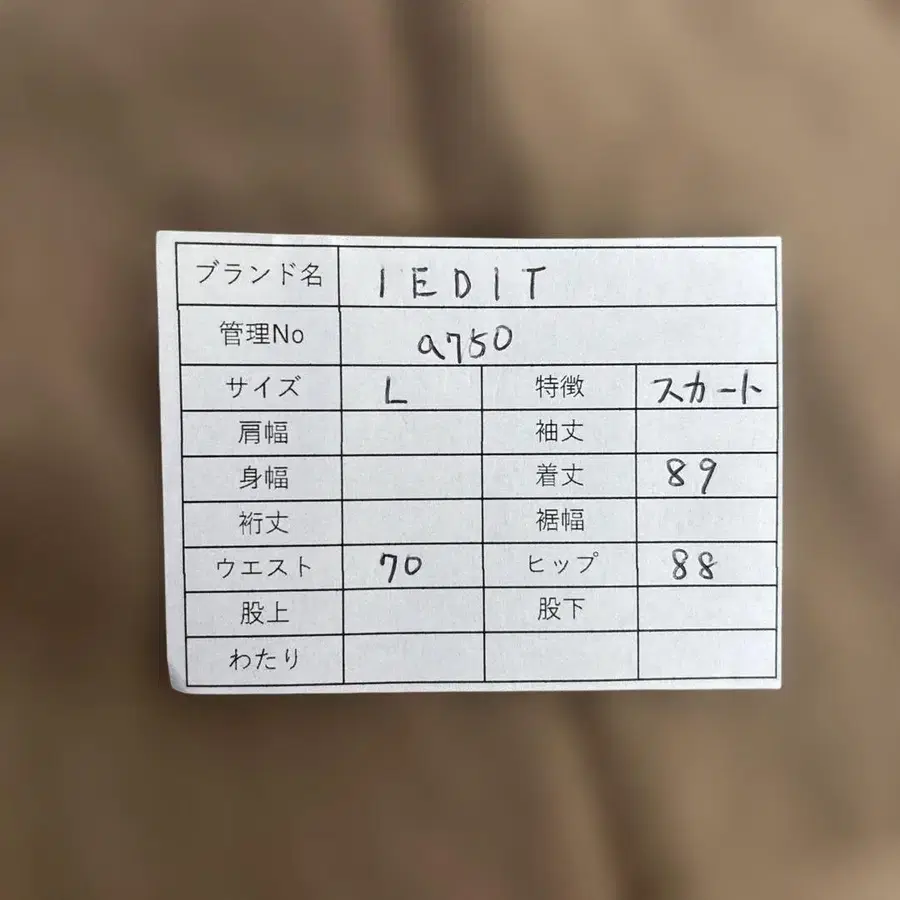 ブランド名 IEDIT
管理No a750
サイズ L 特徴 スカート
肩幅 袖丈
身幅 着丈 89
裄丈 裾幅
ウエスト 70 ヒップ 88
股上 股下
わたり